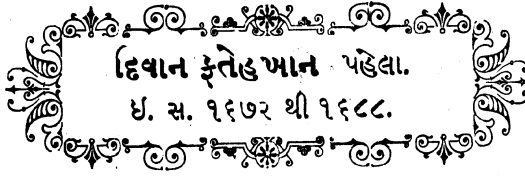 દિવાન ફતેહખાન પહેલા.
ઇ. સ. ૧૬૭૨ થી ૧૬૮૮.